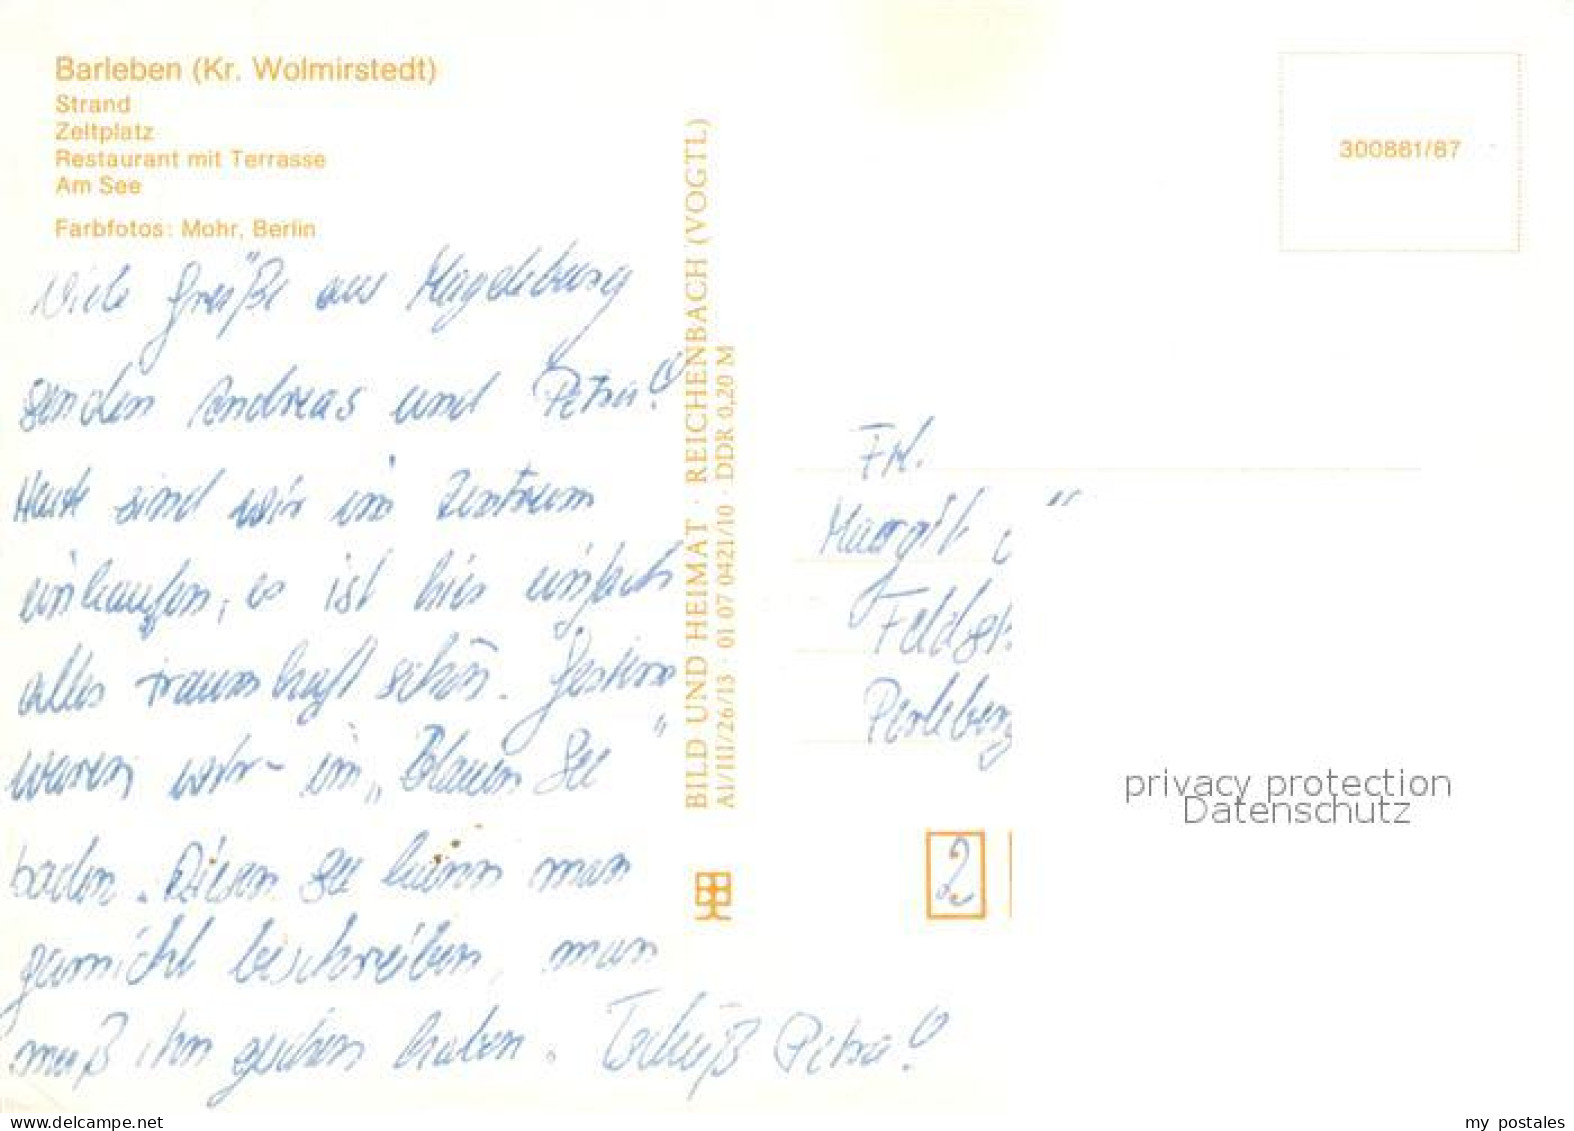 Barleben (Kr. Wolmirstedt)
Strand
Zeltplatz
Restaurant mit Terrasse
Am See
Farbfotos: Mohr, Berlin
Viele Grüße aus Magdeburg
senden Andreas und Petra!
Heute sind wir im Zentrum
einkaufen, es ist hier einfach
alles traumhaft schön. Gestern
waren wir im „Blauen See"
baden. Diesen See kann man
garnicht beschreiben, man
muß ihn gesehen haben. Tschüß Petra!
BILD UND HEIMAT · REICHENBACH (VOGTL)
A1/III/26/13 · 01 07 0421/10 · DDR 0,20 M
300881/87
Frl.
Margit
Feldst
Perleberg
2
privacy protection
Datenschutz
my postales